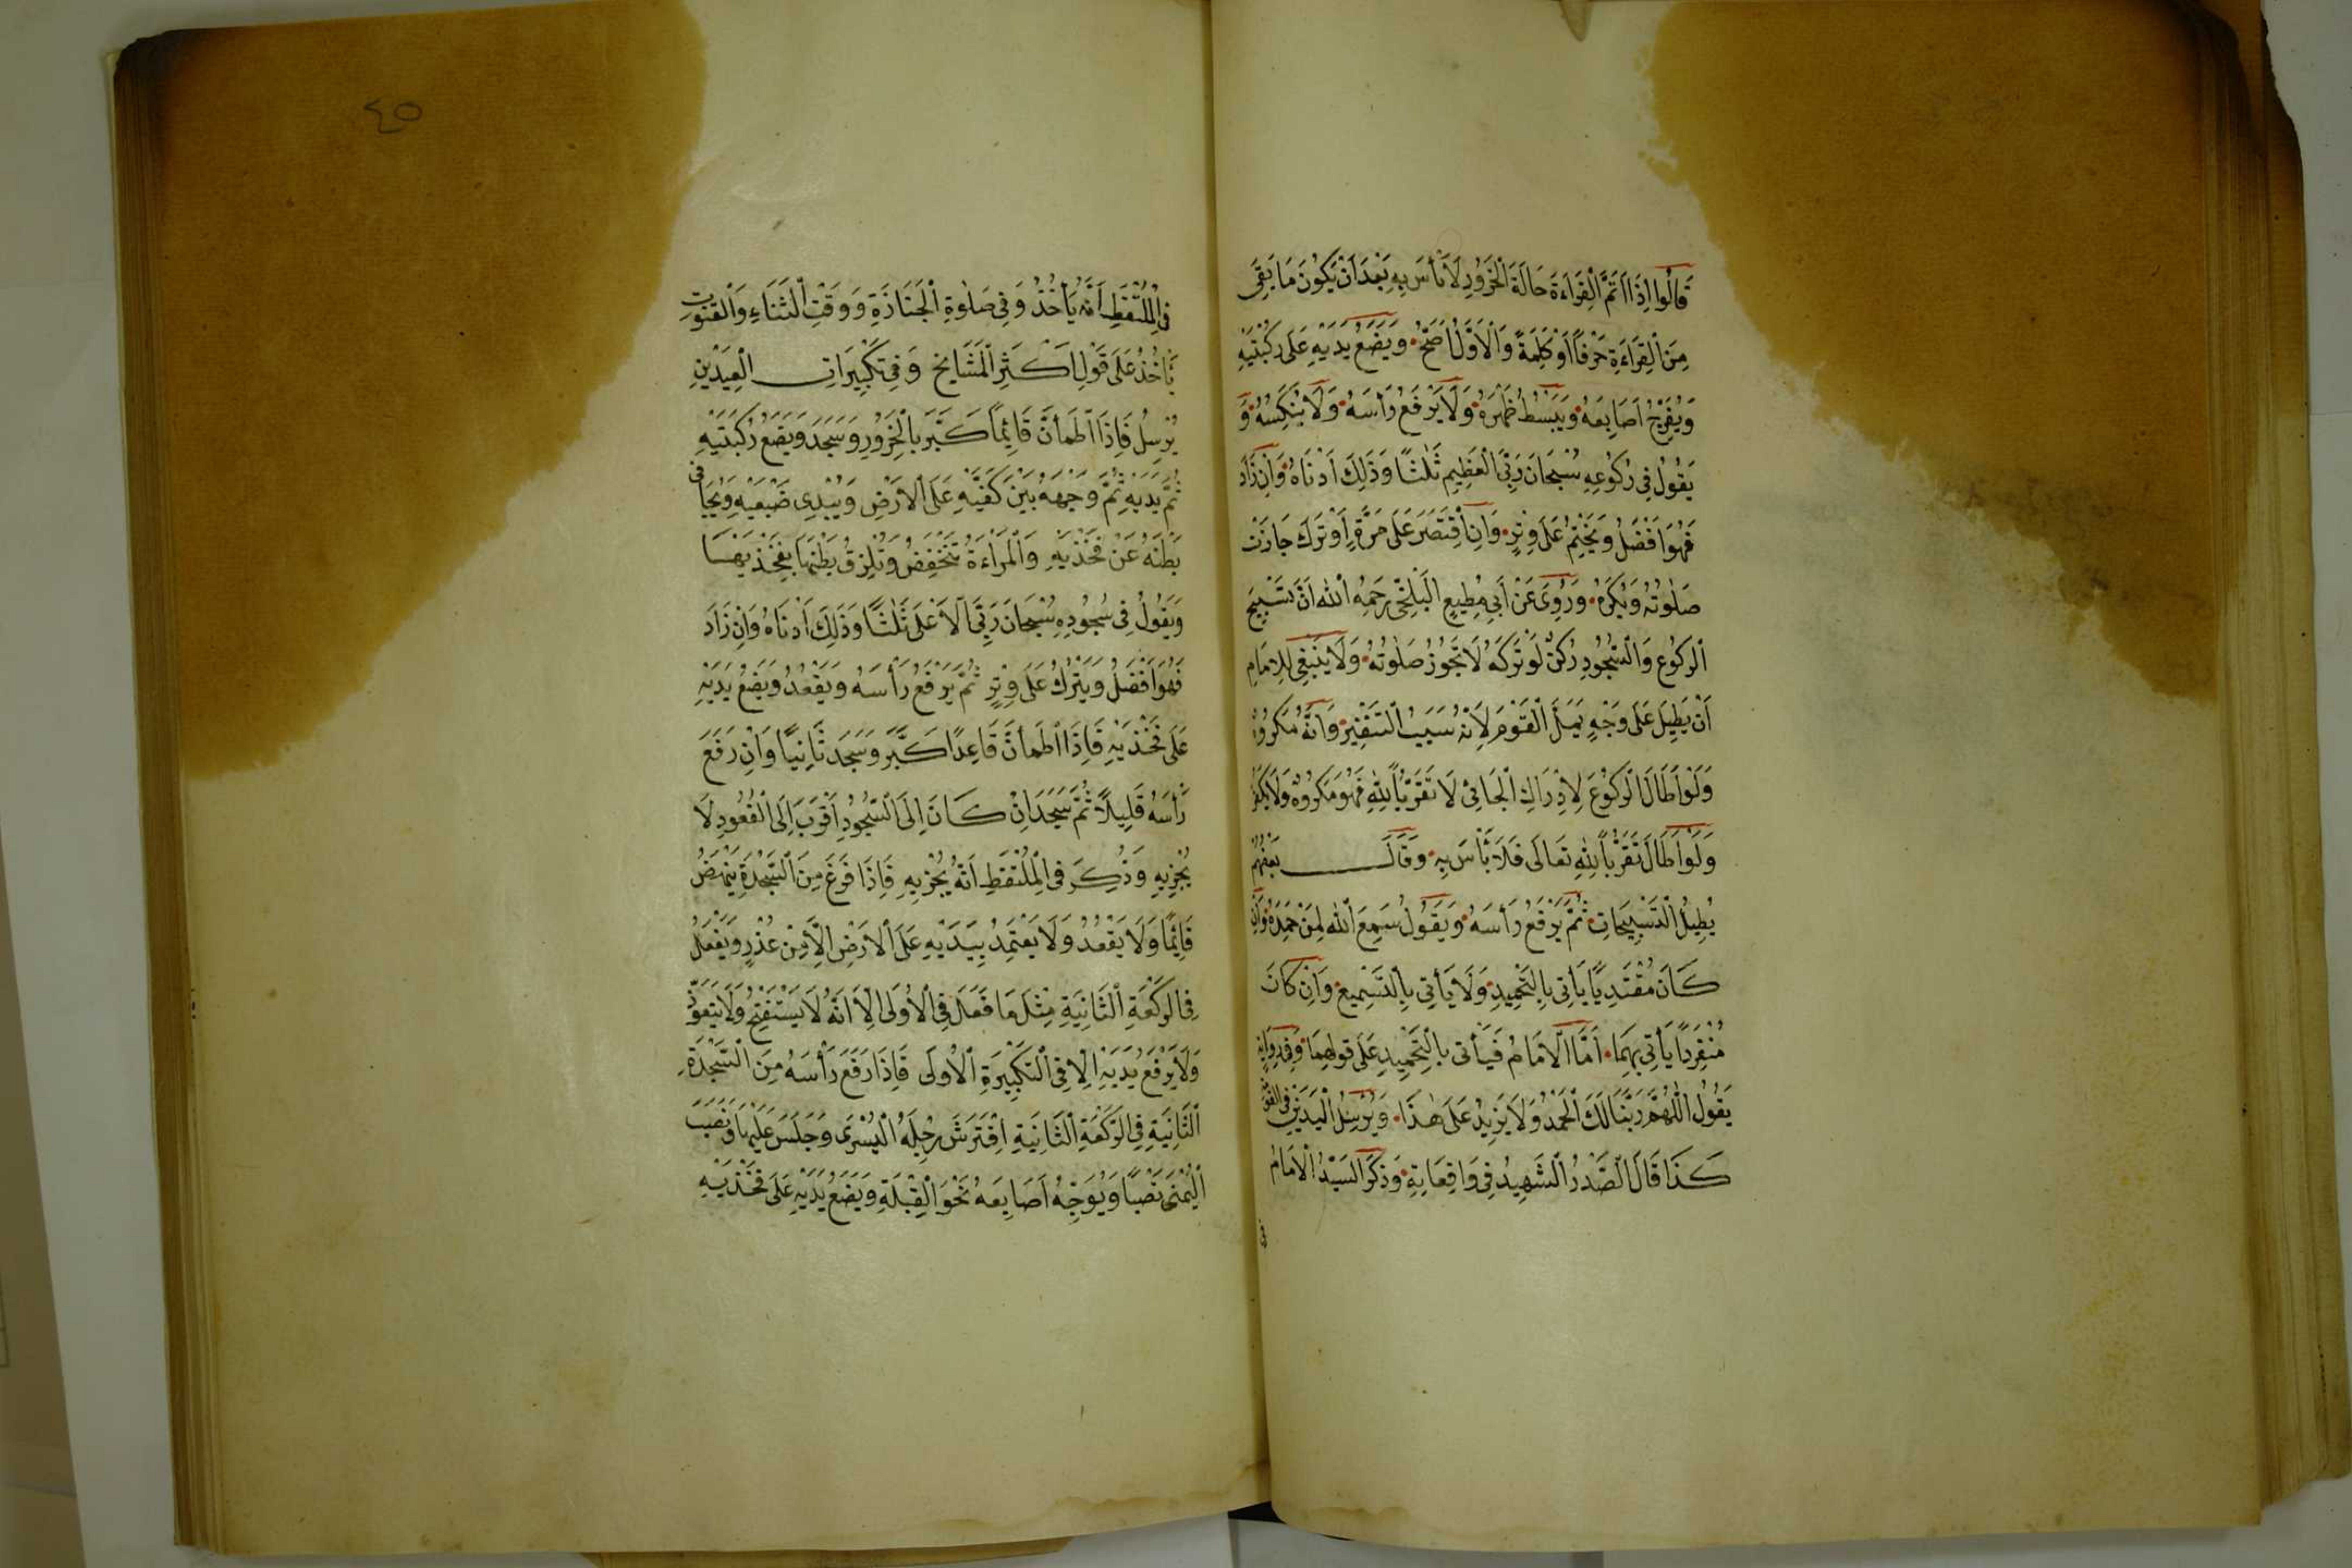 قَالُوا اِذَا اَتَمَّ الْقِرَاءَةَ حَالَةَ الْخُرُورِ لَا بَأْسَ بِهِ بَعْدَ اَنْ يَكُونَ مَا بَقِيَ
مِنَ الْقِرَاءَةِ حَرْفًا اَوْ كَلِمَةً وَالْاَوَّلُ اَصَحُّ وَيَضَعُ يَدَيْهِ عَلَى رُكْبَتَيْهِ
وَيُفَرِّجُ اَصَابِعَهُ وَيَبْسُطُ ظَهْرَهُ وَلَا يَرْفَعُ رَأْسَهُ وَلَا يُنَكِّسُهُ وَ
يَقُولُ فِي رُكُوعِهِ سُبْحَانَ رَبِّيَ الْعَظِيمِ ثَلٰثًا وَذٰلِكَ اَدْنَاهُ وَاِنْ زَادَ
فَهُوَ اَفْضَلُ وَيَخْتِمُ عَلَى وِتْرٍ وَاِنِ اقْتَصَرَ عَلَى مَرَّةٍ اَوْ تَرَكَ جَازَتْ
صَلٰوتُهُ وَيُكْرَهُ وَرُوِيَ عَنْ اَبِي مُطِيعٍ الْبَلْخِيِّ رَحِمَهُ اللهُ اَنَّ تَسْبِيحَ
الرُّكُوعِ وَالسُّجُودِ رُكْنٌ لَوْ تَرَكَهُ لَا تَجُوزُ صَلٰوتُهُ وَلَا يَنْبَغِي لِلْاِمَامِ
اَنْ يُطِيلَ عَلَى وَجْهٍ يَمَلُّ الْقَوْمُ لِاَنَّهُ سَبَبُ التَّنْفِيرِ وَاَنَّهُ مَكْرُوهٌ
وَلَوْ اَطَالَ الرُّكُوعَ لِاِدْرَاكِ الْجَائِي لَا تَقَرُّبًا لِلّٰهِ فَهُوَ مَكْرُوهٌ وَلَا يَكْفُرُ
وَلَوْ اَطَالَ تَقَرُّبًا لِلّٰهِ تَعَالَى فَلَا بَأْسَ بِهِ وَقَالَ بَعْضُهُمْ
يُطِيلُ التَّسْبِيحَاتِ ثُمَّ يَرْفَعُ رَأْسَهُ وَيَقُولُ سَمِعَ اللهُ لِمَنْ حَمِدَهُ وَاِنْ
كَانَ مُقْتَدِيًا يَأْتِي بِالتَّحْمِيدِ وَلَا يَأْتِي بِالتَّسْمِيعِ وَاِنْ كَانَ
مُنْفَرِدًا يَأْتِي بِهِمَا اَمَّا الْاِمَامُ فَيَأْتِي بِالتَّحْمِيدِ عَلَى قَوْلِهِمَا وَفِي رِوَايَةٍ
يَقُولُ اللّٰهُمَّ رَبَّنَا لَكَ الْحَمْدُ وَلَا يَزِيدُ عَلَى هٰذَا وَيُرْسِلُ الْيَدَيْنِ فِي الْقَوْمَةِ
كَذَا قَالَ الصَّدْرُ الشَّهِيدُ فِي وَاقِعَاتِهِ وَذَكَرَ السَّيِّدُ الْاِمَامُ
فى
٤٥
فِي الْمُلْتَقَطِ اَنَّهُ يَأْخُذُ وَفِي صَلٰوةِ الْجَنَازَةِ وَوَقْتِ الثَّنَاءِ وَالْقُنُوتِ
يَأْخُذُ عَلَى قَوْلِ اَكْثَرِ الْمَشَايِخِ وَفِي تَكْبِيرَاتِ الْعِيدَيْنِ
يُرْسِلُ فَاِذَا اطْمَأَنَّ قَائِمًا كَبَّرَ بِالْخُرُورِ وَسَجَدَ وَيَضَعُ رُكْبَتَيْهِ
ثُمَّ يَدَيْهِ ثُمَّ وَجْهَهُ بَيْنَ كَفَّيْهِ عَلَى الْاَرْضِ وَيُبْدِي ضَبْعَيْهِ وَيُجَافِي
بَطْنَهُ عَنْ فَخْذَيْهِ وَالْمَرْاَةُ تَنْخَفِضُ وَتُلْزِقُ بَطْنَهَا بِفَخْذَيْهَا
وَيَقُولُ فِي سُجُودِهِ سُبْحَانَ رَبِّيَ الْاَعْلَى ثَلٰثًا وَذٰلِكَ اَدْنَاهُ وَاِنْ زَادَ
فَهُوَ اَفْضَلُ وَيَتْرُكُ عَلَى وِتْرٍ ثُمَّ يَرْفَعُ رَأْسَهُ وَيَقْعُدُ وَيَضَعُ يَدَيْهِ
عَلَى فَخْذَيْهِ فَاِذَا اطْمَأَنَّ قَاعِدًا كَبَّرَ وَسَجَدَ ثَانِيًا وَاِنْ رَفَعَ
رَأْسَهُ قَلِيلًا ثُمَّ سَجَدَ اِنْ كَانَ اِلَى السُّجُودِ اَقْرَبَ اِلَى الْقُعُودِ لَا
يُجْزِيهِ وَذُكِرَ فِي الْمُلْتَقَطِ اَنَّهُ يُجْزِيهِ فَاِذَا فَرَغَ مِنَ السَّجْدَةِ يَنْهَضُ
قَائِمًا وَلَا يَقْعُدُ وَلَا يَعْتَمِدُ بِيَدَيْهِ عَلَى الْاَرْضِ اِلَّا مِنْ عُذْرٍ وَيَفْعَلُ
فِي الرَّكْعَةِ الثَّانِيَةِ مِثْلَ مَا فَعَلَ فِي الْاُولَى اِلَّا اَنَّهُ لَا يَسْتَفْتِحُ وَلَا يَتَعَوَّذُ
وَلَا يَرْفَعُ يَدَيْهِ اِلَّا فِي التَّكْبِيرَةِ الْاُولَى فَاِذَا رَفَعَ رَأْسَهُ مِنَ السَّجْدَةِ
الثَّانِيَةِ فِي الرَّكْعَةِ الثَّانِيَةِ افْتَرَشَ رِجْلَهُ الْيُسْرَى وَجَلَسَ عَلَيْهَا وَنَصَبَ
الْيُمْنَى نَصْبًا وَيُوَجِّهُ اَصَابِعَهُ نَحْوَ الْقِبْلَةِ وَيَضَعُ يَدَيْهِ عَلَى فَخْذَيْهِ